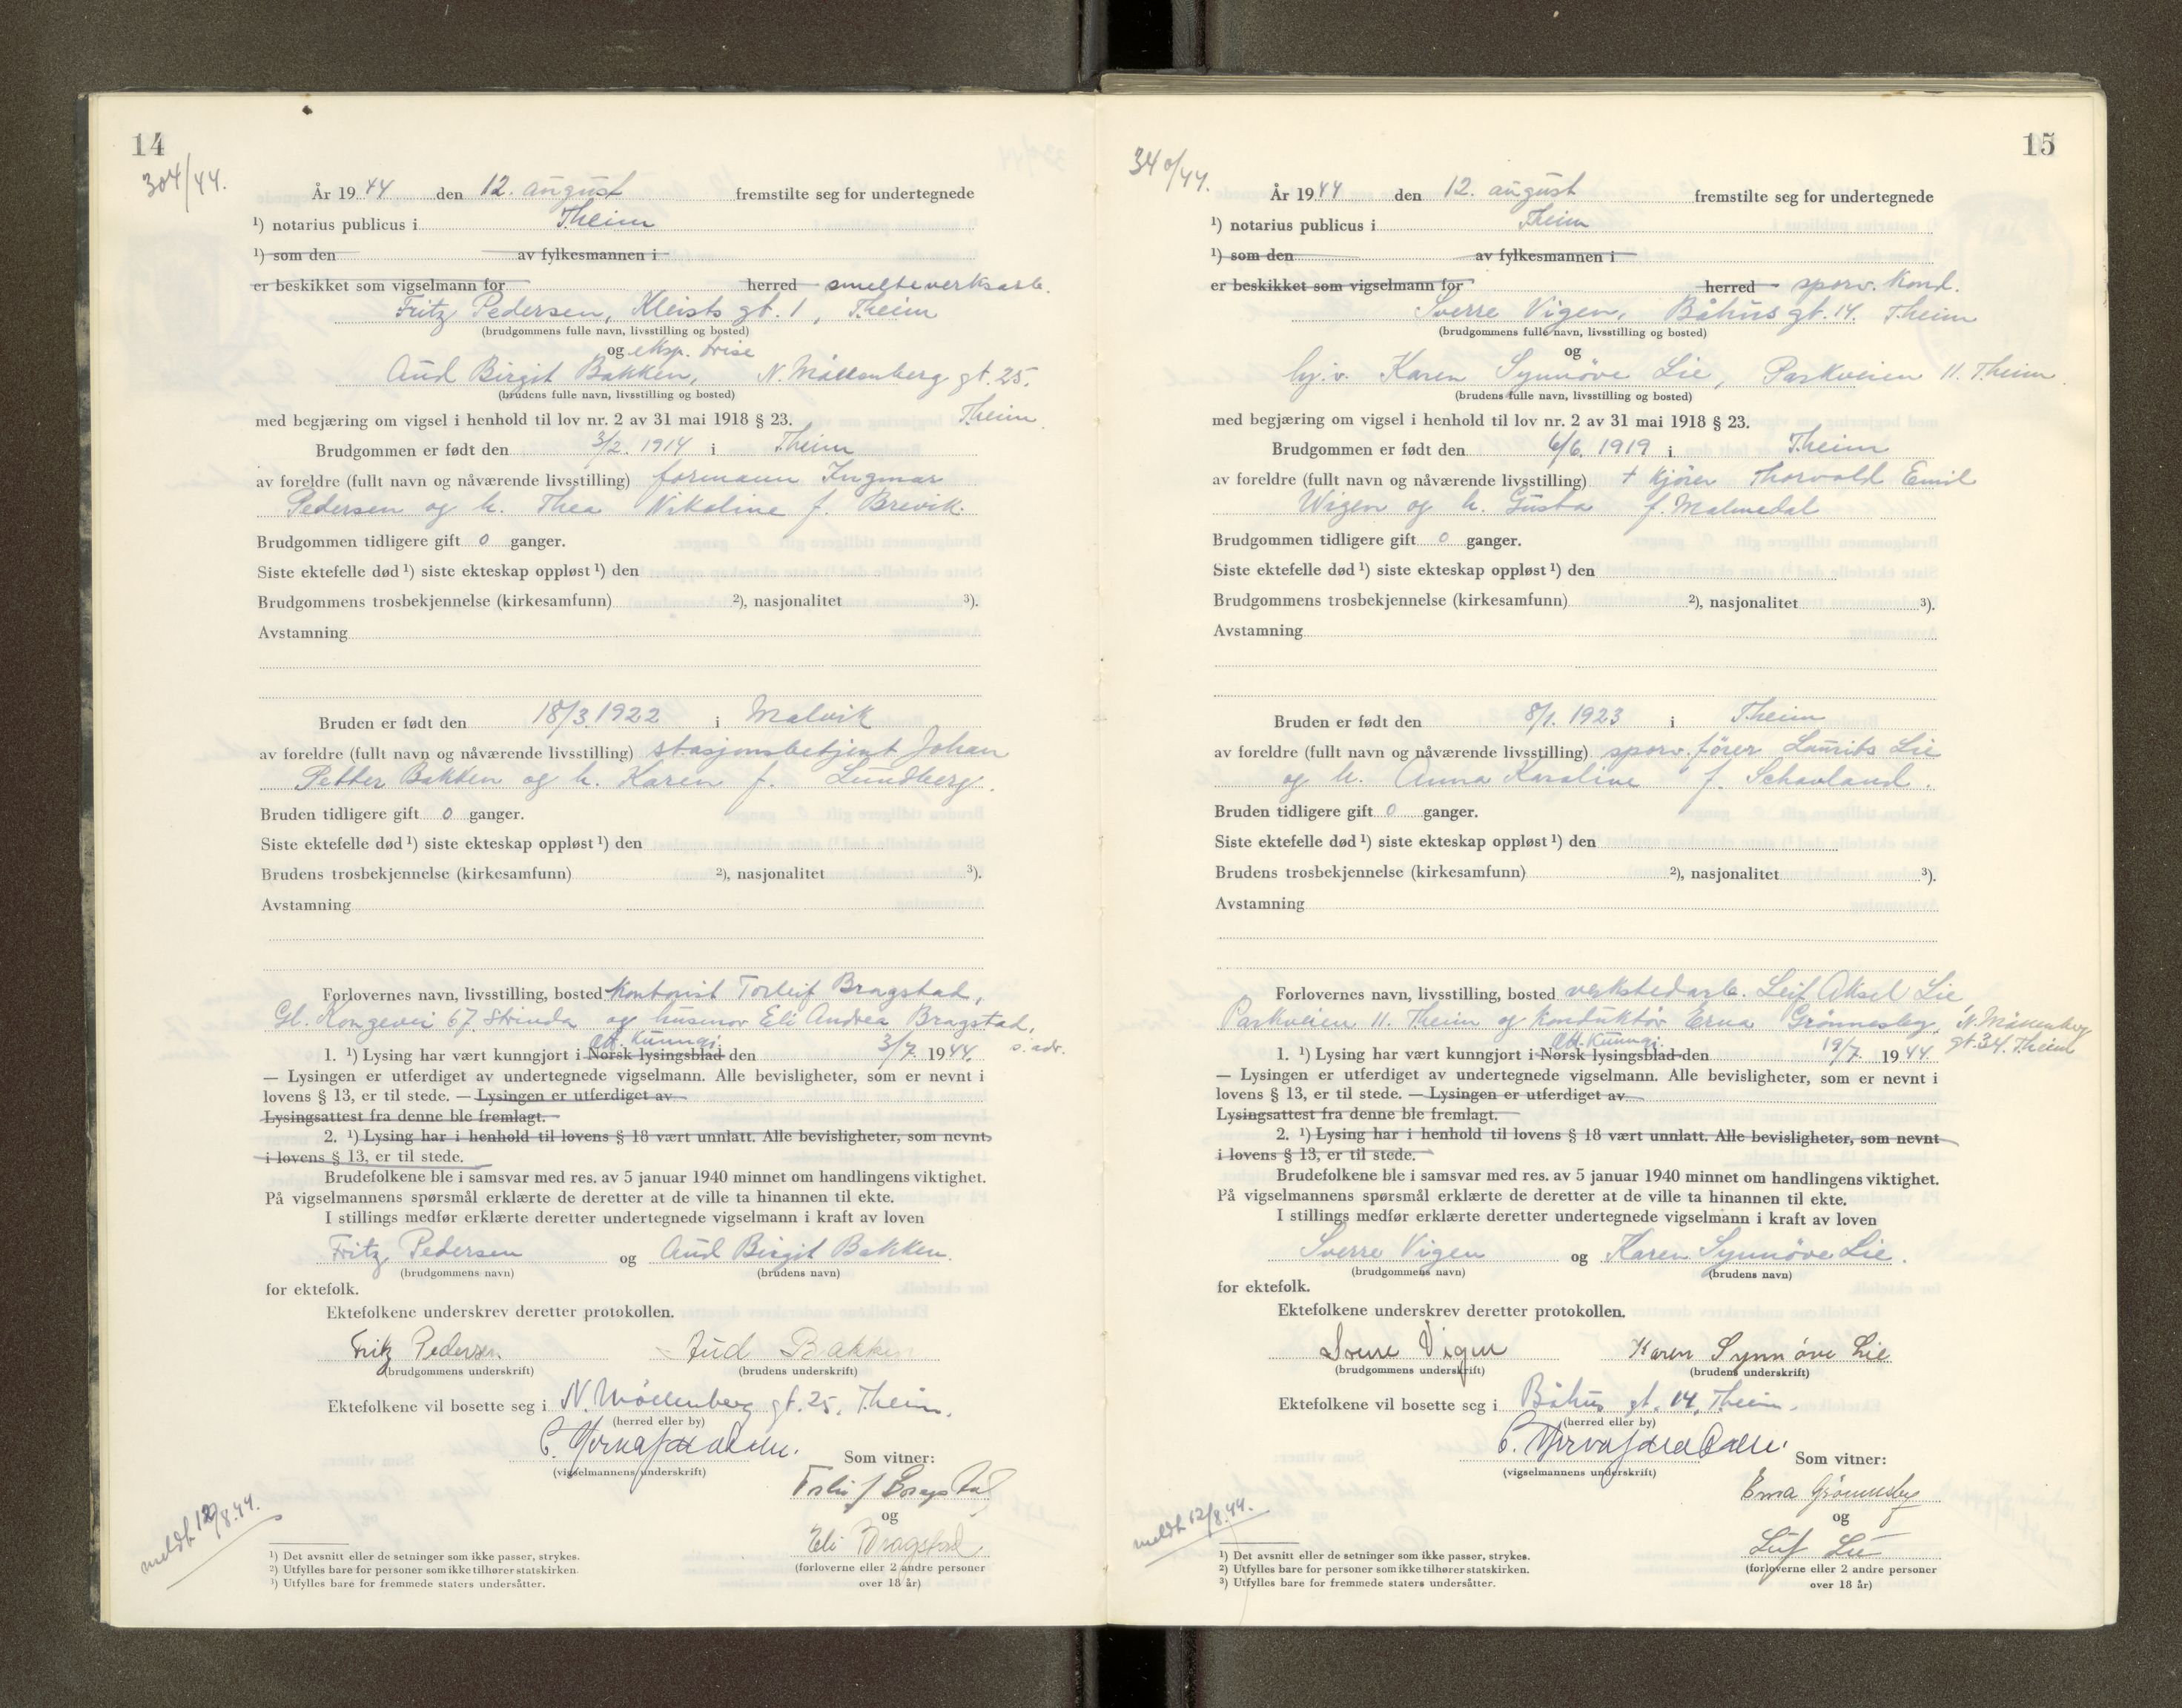 14
304/44.
År 19 44 den 12. august fremstilte seg for undertegnede
¹) notarius publicus i Theim
¹) som den av fylkesmannen i
er beskikket som vigselmann for herred smelteverksarb.
Fritz Pedersen, Kleists gt. 1, Theim
(brudgommens fulle navn, livsstilling og bosted)
og eksp. trise
Aud Birgit Bakken, N. Möllenberg gt. 25.
(brudens fulle navn, livsstilling og bosted)
med begjæring om vigsel i henhold til lov nr. 2 av 31 mai 1918 § 23. Theim
Brudgommen er født den 3/2. 1914 i Theim
av foreldre (fullt navn og nåværende livsstilling) formann Ingmar
Pedersen og h. Thea Nikoline f. Brevik.
Brudgommen tidligere gift 0 ganger.
Siste ektefelle død ¹) siste ekteskap oppløst ¹) den
Brudgommens trosbekjennelse (kirkesamfunn) ²), nasjonalitet ³).
Avstamning
Bruden er født den 18/3. 1922 i Malvik
av foreldre (fullt navn og nåværende livsstilling) stasjonsbetjent Johan
Petter Bakken og h. Karen f. Lundberg.
Bruden tidligere gift 0 ganger.
Siste ektefelle død ¹) siste ekteskap oppløst ¹) den
Brudens trosbekjennelse (kirkesamfunn) ²), nasjonalitet ³).
Avstamning
Forlovernes navn, livsstilling, bosted kontorist Torleif Bragstad,
Gl. Kongevei 67. Strinda og husmor Eli Andrea Bragstad,
off. kunngj. s. adr.
1. ¹) Lysing har vært kunngjort i Norsk lysingsblad den 3/7. 1944.
— Lysingen er utferdiget av undertegnede vigselmann. Alle bevisligheter, som er nevnt i
lovens § 13, er til stede. — Lysingen er utferdiget av
Lysingsattest fra denne ble fremlagt.
2. ¹) Lysing har i henhold til lovens § 18 vært unnlatt. Alle bevisligheter, som nevnt
i lovens § 13, er til stede.
Brudefolkene ble i samsvar med res. av 5 januar 1940 minnet om handlingens viktighet.
På vigselmannens spørsmål erklærte de deretter at de ville ta hinannen til ekte.
I stillings medfør erklærte deretter undertegnede vigselmann i kraft av loven
Fritz Pedersen og Aud Birgit Bakken.
(brudgommens navn) (brudens navn)
for ektefolk.
Ektefolkene underskrev deretter protokollen.
Fritz Pedersen Aud Bakken
(brudgommens underskrift) (brudens underskrift)
Ektefolkene vil bosette seg i N. Möllenberg gt. 25, Theim.
(herred eller by)
(vigselmannens underskrift)
Som vitner:
Torleif Bragstad
og
Eli Bragstad
(forloverne eller 2 andre personer
over 18 år)
meldt 12/8.44.
¹) Det avsnitt eller de setninger som ikke passer, strykes.
²) Utfylles bare for personer som ikke tilhører statskirken.
³) Utfylles bare for fremmede staters undersåtter.
15
340/44.
År 19 44 den 12. august fremstilte seg for undertegnede
¹) notarius publicus i Theim
¹) som den av fylkesmannen i
er beskikket som vigselmann for herred sporv. kond.
Sverre Vigen, Båhus gt. 14. Theim
(brudgommens fulle navn, livsstilling og bosted)
og
hj. v. Karen Synnöve Lie, Parkveien 11. Theim
(brudens fulle navn, livsstilling og bosted)
med begjæring om vigsel i henhold til lov nr. 2 av 31 mai 1918 § 23.
Brudgommen er født den 6/6. 1919 i Theim
av foreldre (fullt navn og nåværende livsstilling) + kjörer Thorvald Emil
Wigen og h. Gusta f. Malmedal
Brudgommen tidligere gift 0 ganger.
Siste ektefelle død ¹) siste ekteskap oppløst ¹) den
Brudgommens trosbekjennelse (kirkesamfunn) ²), nasjonalitet ³).
Avstamning
Bruden er født den 8/1. 1923 i Theim
av foreldre (fullt navn og nåværende livsstilling) sporv. förer Laurits Lie
og h. Anna Karoline f. Schavland.
Bruden tidligere gift 0 ganger.
Siste ektefelle død ¹) siste ekteskap oppløst ¹) den
Brudens trosbekjennelse (kirkesamfunn) ²), nasjonalitet ³).
Avstamning
Forlovernes navn, livsstilling, bosted verkstedarb. Leif Aksel Lie,
Parkveien 11. Theim og konduktör Erna Grönnesby, N. Möllenberg
off. kunngj. gt. 34. Theim
1. ¹) Lysing har vært kunngjort i Norsk lysingsblad den 19/7. 1944
— Lysingen er utferdiget av undertegnede vigselmann. Alle bevisligheter, som er nevnt i
lovens § 13, er til stede. — Lysingen er utferdiget av
Lysingsattest fra denne ble fremlagt.
2. ¹) Lysing har i henhold til lovens § 18 vært unnlatt. Alle bevisligheter, som nevnt
i lovens § 13, er til stede.
Brudefolkene ble i samsvar med res. av 5 januar 1940 minnet om handlingens viktighet.
På vigselmannens spørsmål erklærte de deretter at de ville ta hinannen til ekte.
I stillings medfør erklærte deretter undertegnede vigselmann i kraft av loven
Sverre Vigen og Karen Synnöve Lie.
(brudgommens navn) (brudens navn)
for ektefolk.
Ektefolkene underskrev deretter protokollen.
Sverre Vigen Karen Synnöve Lie
(brudgommens underskrift) (brudens underskrift)
Ektefolkene vil bosette seg i Båhus gt. 14, Theim.
(herred eller by)
(vigselmannens underskrift)
Som vitner:
Erna Grönnesby
og
Leif Lie
(forloverne eller 2 andre personer
over 18 år)
meldt 12/8.44.
¹) Det avsnitt eller de setninger som ikke passer, strykes.
²) Utfylles bare for personer som ikke tilhører statskirken.
³) Utfylles bare for fremmede staters undersåtter.